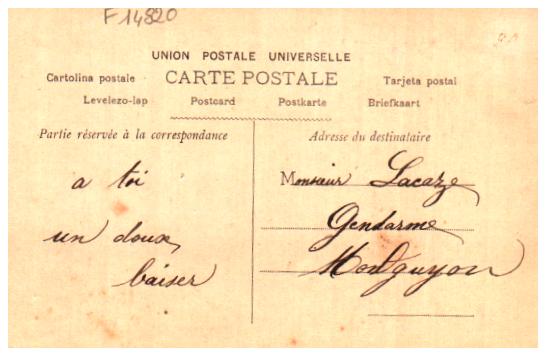 F 14820
UNION POSTALE UNIVERSELLE
Cartolina postale CARTE POSTALE Tarjeta postal
Levelezo-lap Postcard Postkarte Briefkaart
Partie réservée à la correspondance
a toi
un doux
baiser
Adresse du destinataire
Monsieur Lacaze
Gendarme
Montguyon